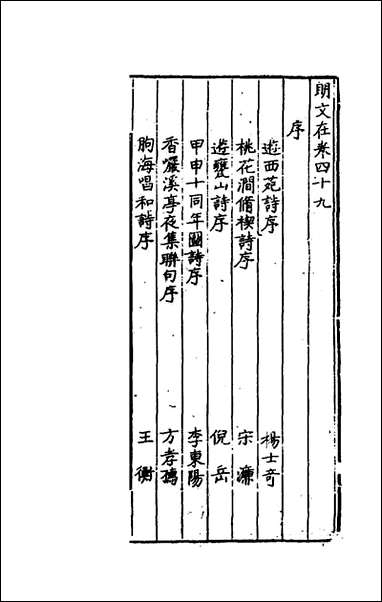 明文在卷四十九
序
遊西苑詩序 楊士竒
桃花澗脩禊詩序 宋濂
遊甕山詩序 倪岳
甲申十同年圖詩序 李東陽
香巖溪亭夜集聯句序 方孝孺
朐海唱和詩序 王衡